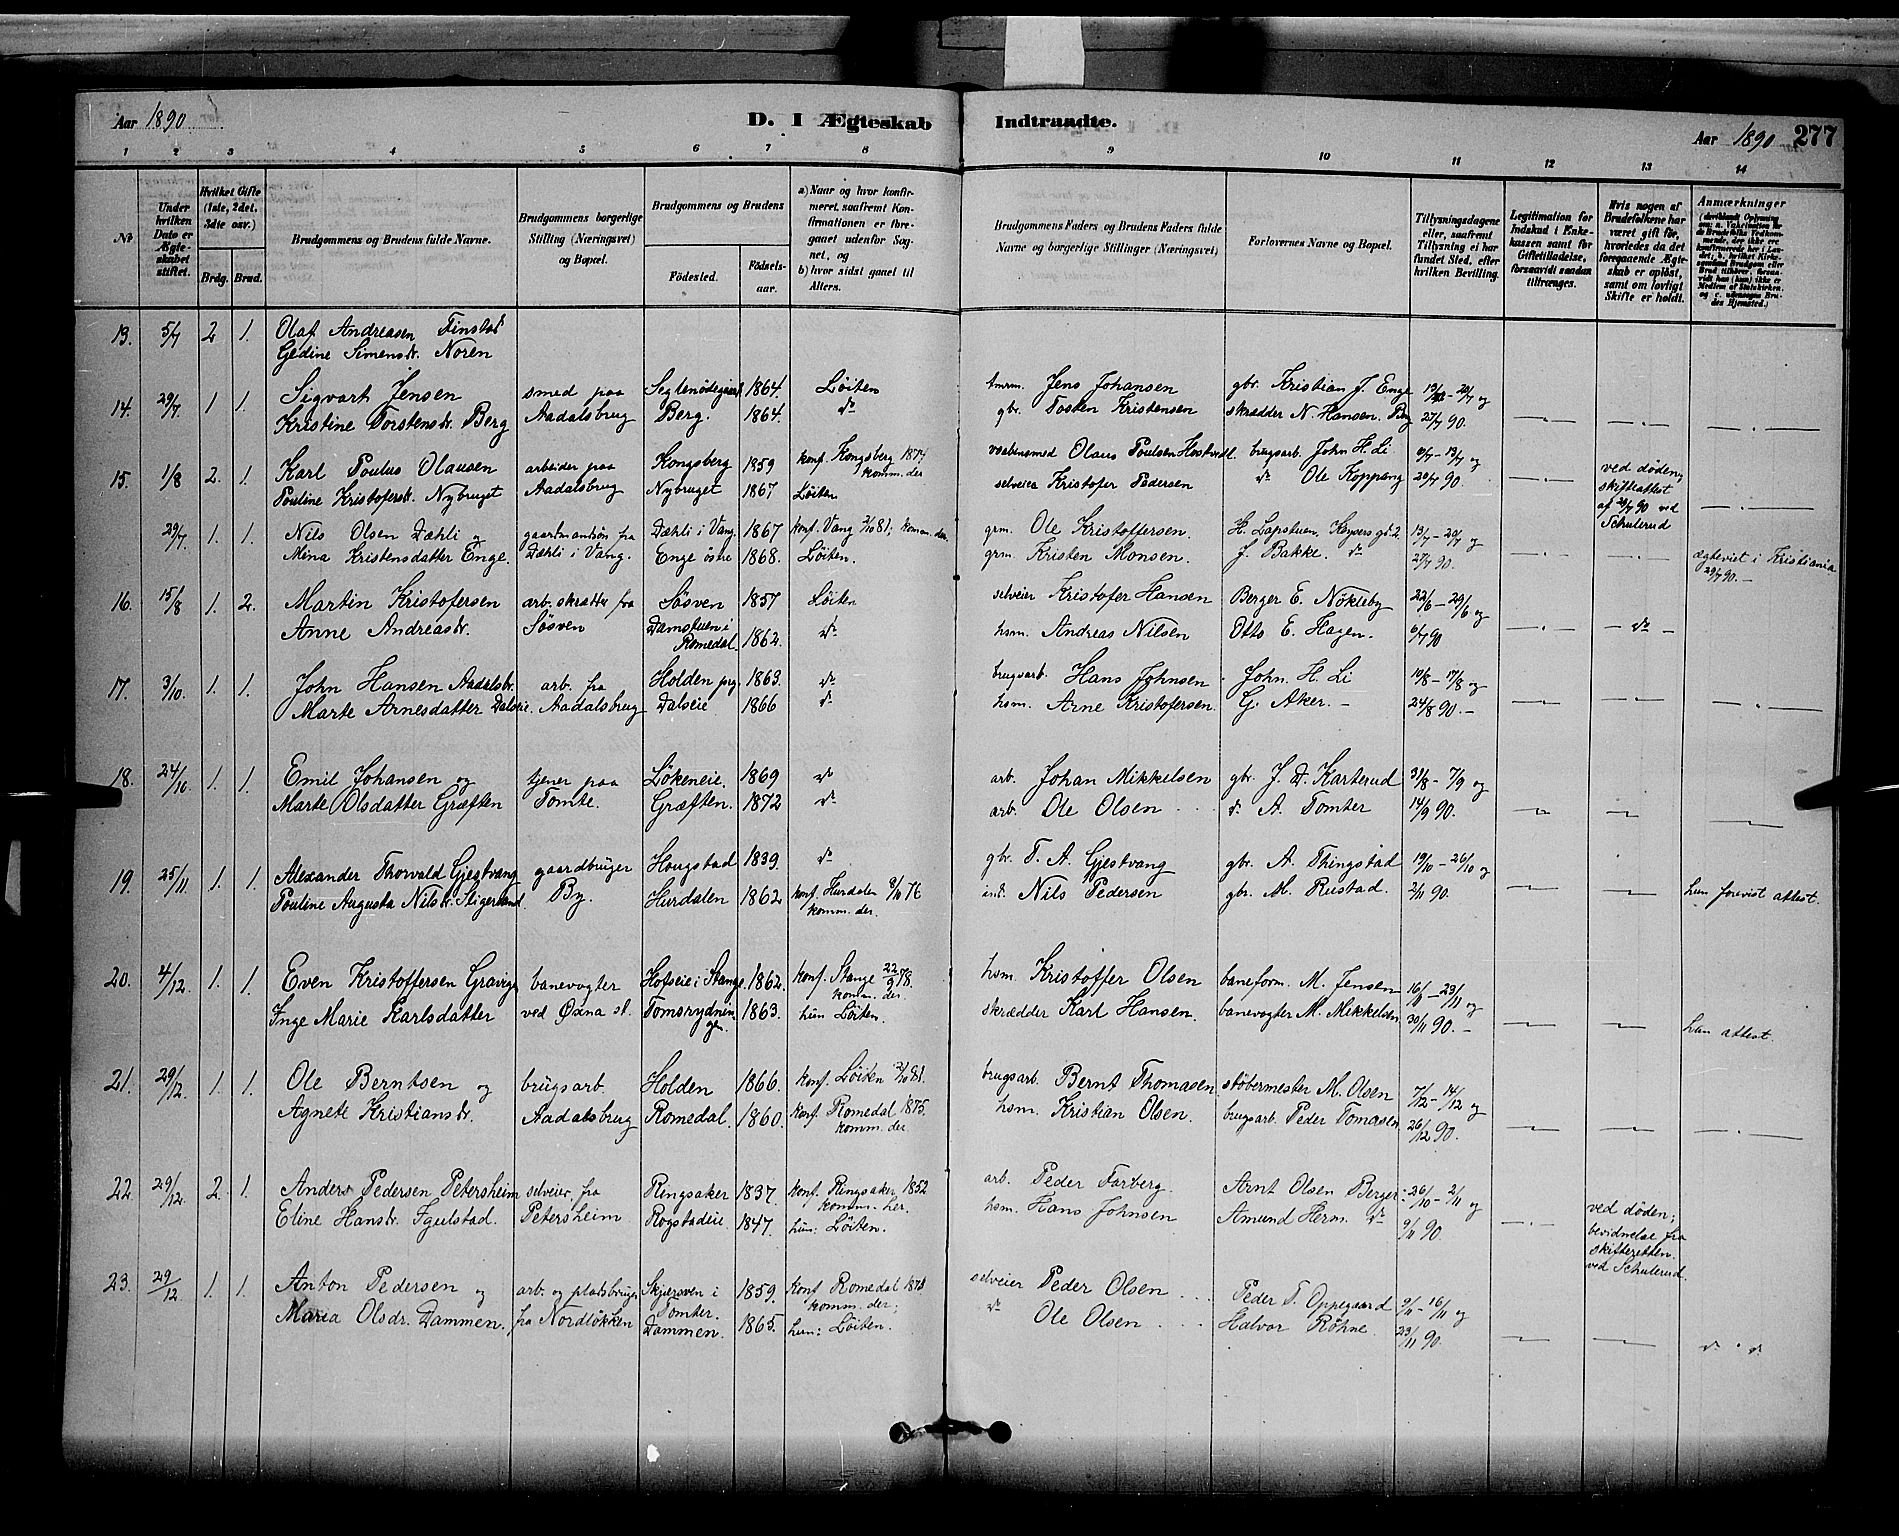 Aar 1890
D. I Ægteskab Indtraadte.
Aar 1890 277
1 2 3 4 5 6 7 8 9 10 11 12 13 14
No
Under hvilken Dato er Ægteskabet stiftet.
Hvilket Gifte (1ste, 2det, 3die osv.)
Brdg. Brud.
Brudgommens og Brudens fulde Navne.
Brudgommens borgerlige Stilling (Næringsvei) og Bopæl.
Brudgommens og Brudens
Fødested. Fødselsaar.
a) Naar og hvor konfirmeret, saafremt Konfirmationen er foregaaet udenfor Sognet, og
b) hvor sidst gaaet til Alters.
Brudgommens Faders og Brudens Faders fulde Navne og borgerlige Stillinger (Næringsvei)
Forlovernes Navne og Bopæl.
Tillysningsdagene eller, saafremt Tillysning ei har fundet Sted, efter hvilken Bevilling.
Legitimation for Indskud i Enkekassen samt for Giftetilladelse, forsaavidt saadan tiltrænges.
Hvis nogen af Brudefolkene har været gift før, hvorledes da det foregaaende Ægteskab er opløst, samt om lovligt Skifte er holdt.
Anmærkninger
13. 5/7 2 1. Olaf Andreasen Finstad
Gedine Simensdr. Noren
14. 29/7 1 1. Sigvart Jensen smed paa 1864. Løiten tmrm. Jens Johansen gbr. Kristian J. Enge 13/7 - 20/7 og
Kristine Torstensdr. Berg Aadalsbrug Berg. 1864. do gbr. Tosten Kristensen skrædder N. Hansen. Berg 27/7 90.
15. 1/8 2. 1. Karl Poulus Olausen arbeider paa Kongsberg 1859 konf. Kongsberg 1874 komm. der Olaus Poulsen brugsarb. John H. Li 6/7 - 13/7 og ved døden,
Pouline Kristofersdr. Nybruget Aadalsbrug Nybruget 1867 Løiten selveier Kristofer Pedersen do Ole Koppang 20/7 90. skifteattest af 29/7 90 ved Schulerud
29/7 1. 1. Nils Olsen Dæhli og gaardmandsøn fra Dæhli i Vang. 1867 konf. Vang 2/10 81; komm. der. grm. Ole Kristoffersen. H. Lapstuen, Keysers gd. 2. 13/7 - 20/7 og
Mina Kristensdatter Enge. Dæhli i Vang. Enge østre 1868. Løiten. grm. Kristen Monsen. J. Bakke. do 27/7 90. ægteviet i Kristiania 29/7 90. -
16. 15/8 1. 2. Martin Kristofersen arb. skrædder fra Søsven 1857 Løiten selveier Kristofer Hansen Berger E. Nökleby 22/6 - 29/6 og
Anne Andreasdr. Søsven Damstuen i Romedal. 1862. do hsm. Andreas Nilsen Otto E. Hagen. 6/7 90 - do -
17. 3/10. 1. 1. John Hansen Aadalsbr. arb. fra Holden prg. 1863. do brugsarb. Hans Johnsen John. H. Li 10/8 - 17/8 og
Marte Arnesdatter Dalseie. Aadalsbrug Dalseie 1866 do hsm. Arne Kristofersen. G. Aker. - 24/8 90. -
18. 24/10 1. 1. Emil Johansen og tjener paa Løkeneie. 1869 do arb. Johan Mikkelsen gbr. J. D. Karterud 31/8 - 7/9 og
Marte Olsdatter Græften Tomte. Græften. 1872 do arb. Ole Olsen do A. Tomter 14/9 90.
19. 25/11 1. 1. Alexander Thorvald Gjestvang gaardbruger Hougstad 1839. do gbr. T. A. Gjestvang gbr. A. Thingstad 19/10 - 26/10 og
Pouline Augusta Nilsdr. Stigersand. By. Hurdalen 1862 konf. Hurdalen 8/10 76 komm. der. ind. Nils Pedersen gbr. M. Rustad. 2/11 90. hun forevist attest.
20. 4/12. 1. 1. Even Kristoffersen banevogter Hofseie i Stange. 1862. konf. Stange 22/9 78. komm. der. hsm. Kristoffer Olsen baneform. M. Jensen 16/11 - 23/11 og
Inge Marie Karlsdatter ved Øxna st. Tomsrydningen. 1863. hun Løiten. skrædder Karl Hansen. banevogter M. Mikkelsen 30/11 90. - han attest.
21. 29/12. 1. 1. Ole Berntsen og brugsarb. Holden 1866. konf. Løiten 2/10 81. brugsarb. Bernt Thomasen støbermester M. Olsen 7/12 - 14/12 og
Agnete Kristiansdr. Aadalsbrug Romedal. 1860. konf. Romedal 1875. komm. der hsm. Kristian Olsen. brugsarb. Peder Tomasen 26/12 90.
22 29/12. 2. 1. Anders Pedersen Petersheim selveier fra Ringsaker 1837. konf. Ringsaker, 1852 komm. her, arb. Peder Farberg. Arnt Olsen Berger 26/10 - 2/11 og ved døden;
Eline Hansdr. Igulstad. Petersheim Rogstadeie. 1847. hun: Løiten. hsm. Hans Johnsen Amund Herm. do 9/11 90. bevidnelse fra skifteretten ved Schulerud.
23. 29/12 1. 1. Anton Pedersen og arb. og pladsbruger Skjærsven i Tomter. 1859. konf Romedal komm. der; selveier Peder Olsen Peder T. Oppegaard 9/11 - 16/11 og
Maria Olsdr. Dammen. fra Nordløkken Dammen. 1865. hun: Løiten. do Ole Olsen Halvor Røhne. 23/11 90. do do